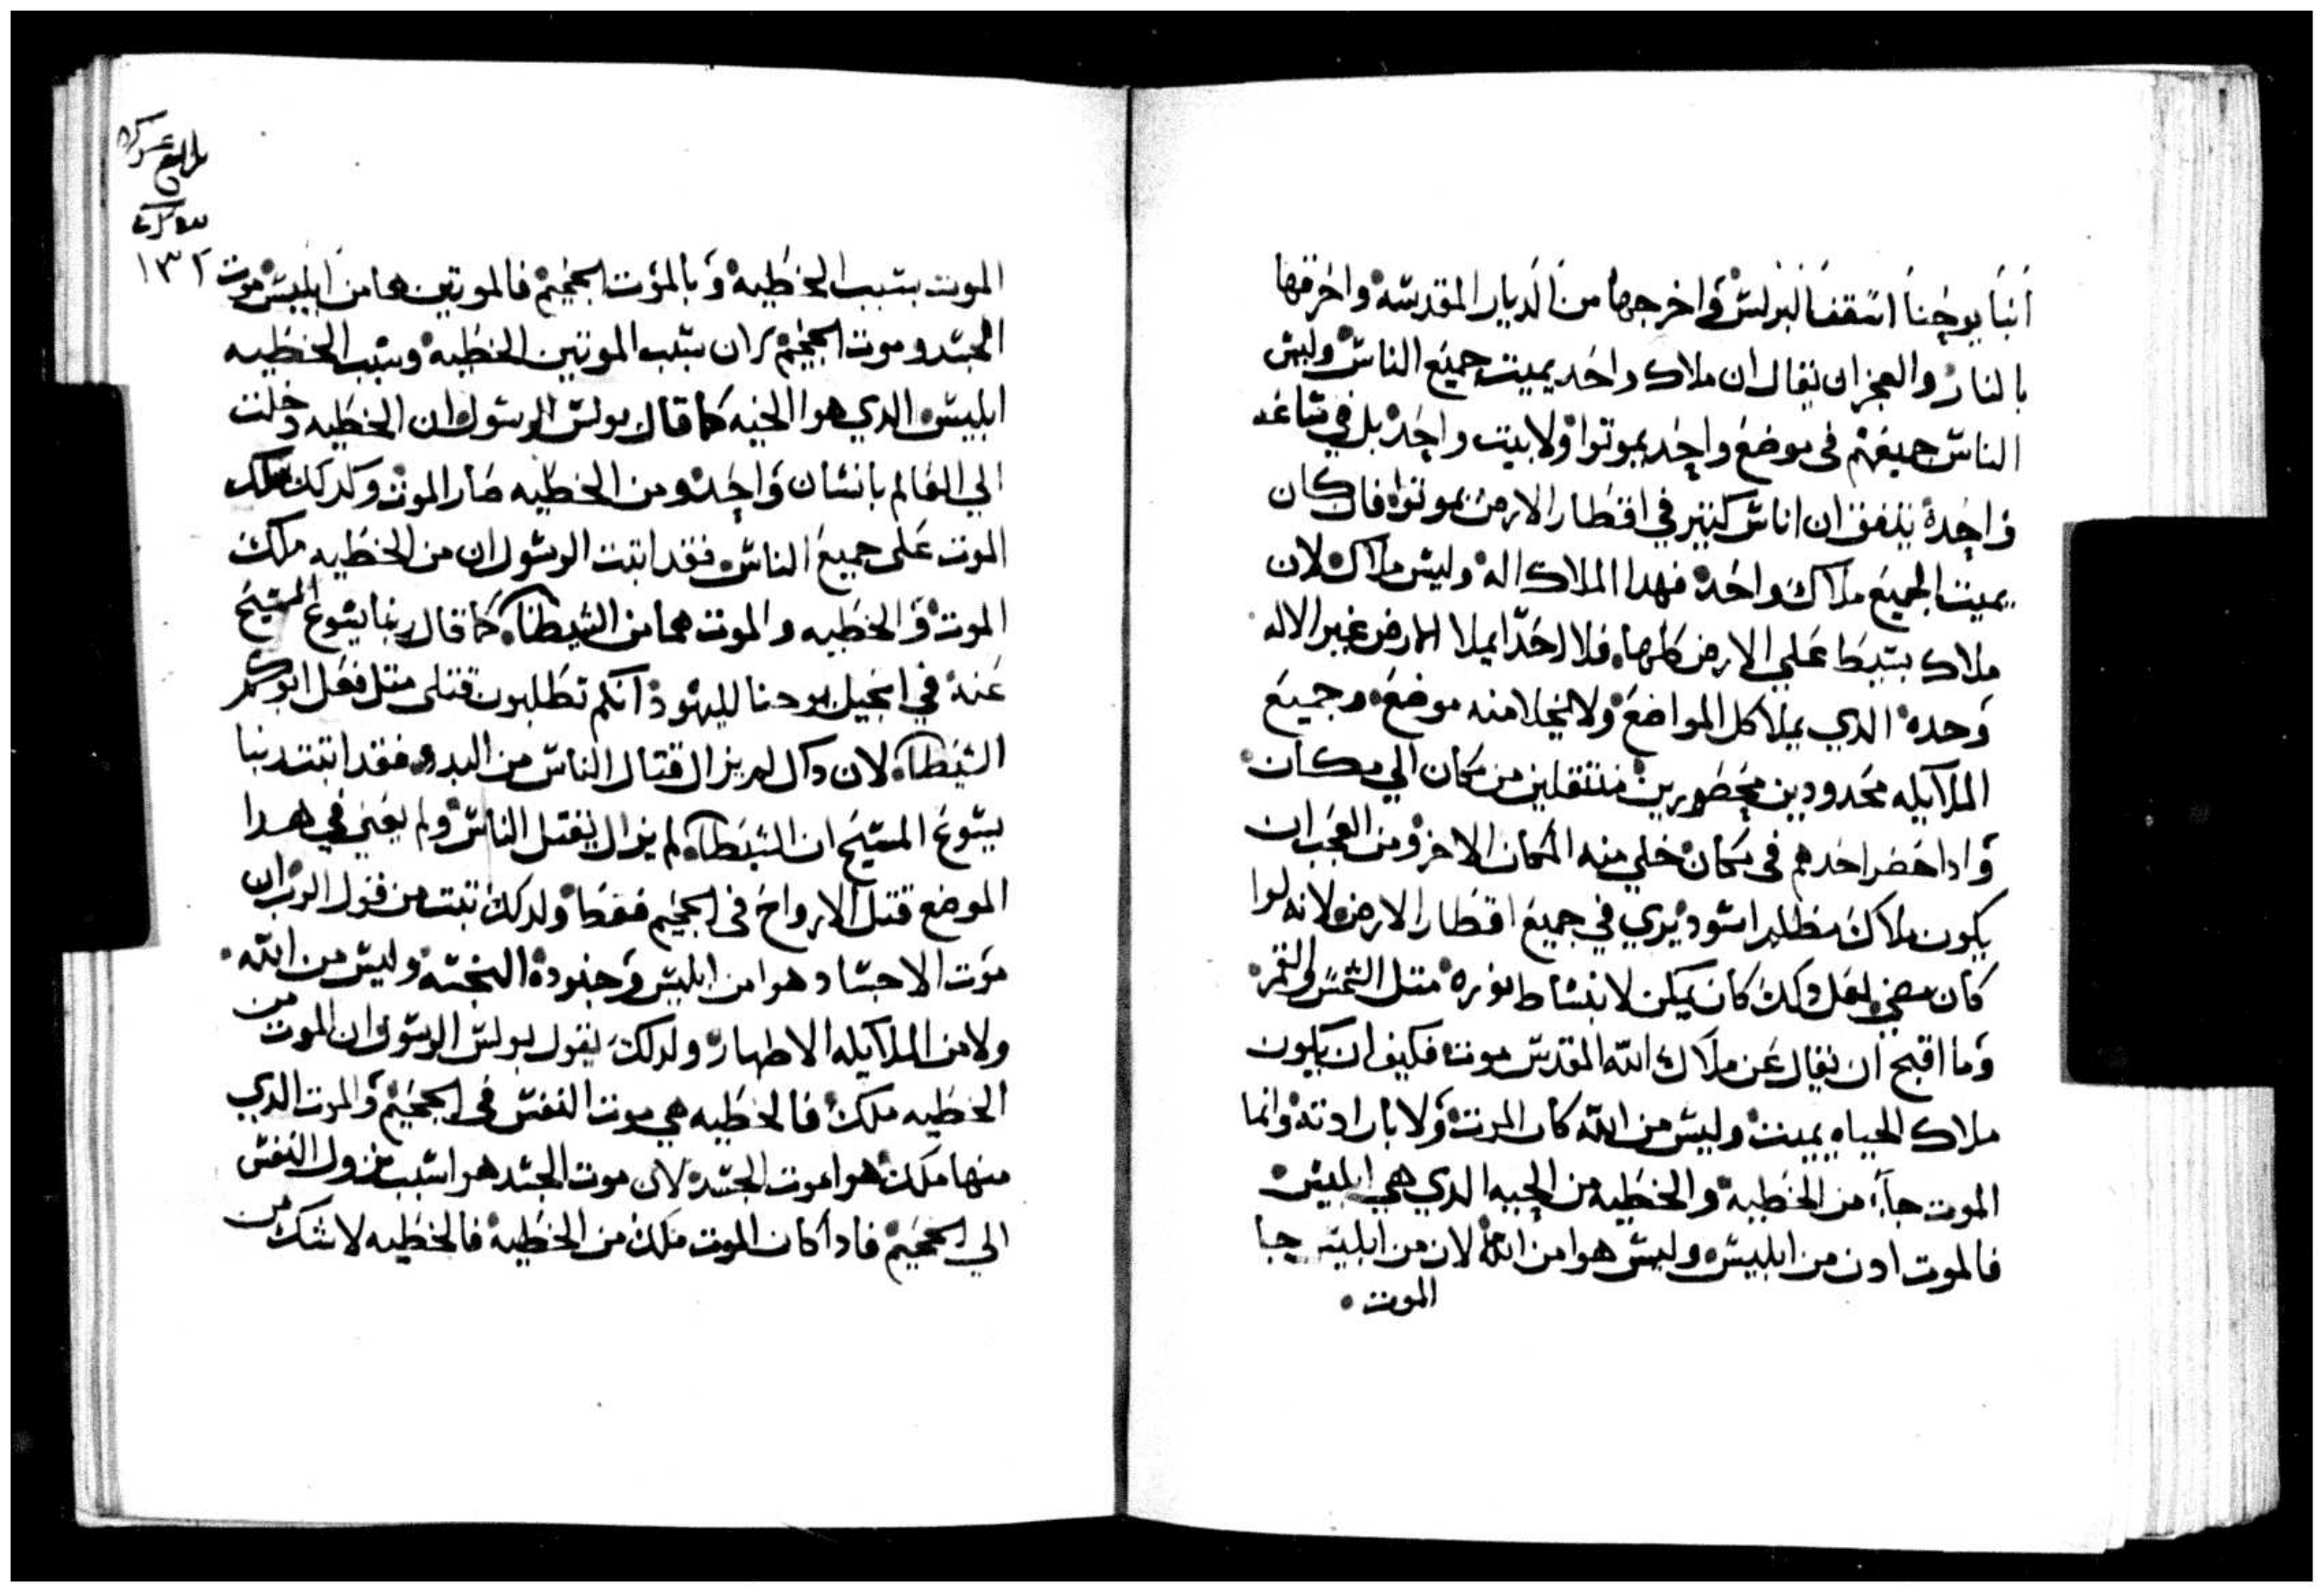 انبا يوحنا اسقف البرلس واخرجها من الديار المقدسه واحرقها
بالنار والعجز ان يقال ان ملاك واحد يميت جميع الناس وليس
الناس جميعهم في موضع واحد يموتوا ولا بيت واحد بل في ساعه
واحدة يتفق ان اناس كتير في اقطار الارض يموتوا فان كان
يميت الجميع ملاك واحد فهدا الملاك اله وليس ملاك لان
ملاك يبسط علي الارض كلها فلا احدا يملا الارض غير الاله
وحده الدي يملا كل المواضع ولا يخلا منه موضع وجميع
الملايكه محدودين محصورين منتقلين من مكان الي مكان
وادا حضر احدهم في مكان خلي منه المكان الاخر ومن العجب ان
يكون ملاك مظلم اسود يري في جميع اقطار الارض لانه لوا
كان مضي لعل دلك كان يمكن لانبساط نوره متل الشمس والقمر
وما اقبح ان يقال عن ملاك الله المقدس موت فكيف ان يكون
ملاك الحياه يميت وليس من الله كان الموت ولا بارادته وانما
الموت جاء من الخطيه والخطيه من الحيه الدي هي ابليس
فالموت ادن من ابليس وليس هوا من الله لان من ابليس جا
الموت
الموت بسبب الخطيه وبالموت الجحيم فالموتين هما من ابليس موت
الجسد وموت الجحيم لان سبب الموتين الخطيه وسبب الخطيه
ابليس الدي هوا الحيه كما قال بولس الرسول ان الخطيه دخلت
الي العالم بانسان واحد ومن الخطيه صار الموت وكدلك ملك
الموت علي جميع الناس فقد اتبت الرسول ان من الخطيه ملك
الموت والخطيه والموت هما من الشيطان كما قال ربنا يسوع المسيح
عنه في انجيل يوحنا لليهود انكم تطلبون قتلي متل فعل ابوكم
الشيطان لان داك لم يزال قتال الناس من البدو فقد اتبت ربنا
يسوع المسيح ان الشيطان لم يزال يقتل الناس ولم يعني في هدا
الموضع قتل الارواح في الجحيم فقط ولدلك تبت من قول الرب ان
موت الاجساد هوا من ابليس وجنوده النجسه وليس من الله
ولا من الملايكه الاطهار ولدلك يقول بولس الرسول ان الموت من
الخطيه ملك فالخطيه هي موت النفس في الجحيم والموت الدي
منها ملك هوا موت الجسد لان موت الجسد هوا سبب نزول النفس
الي الجحيم فادا كان الموت ملك من الخطيه فالخطيه لا شك من
١٣٢